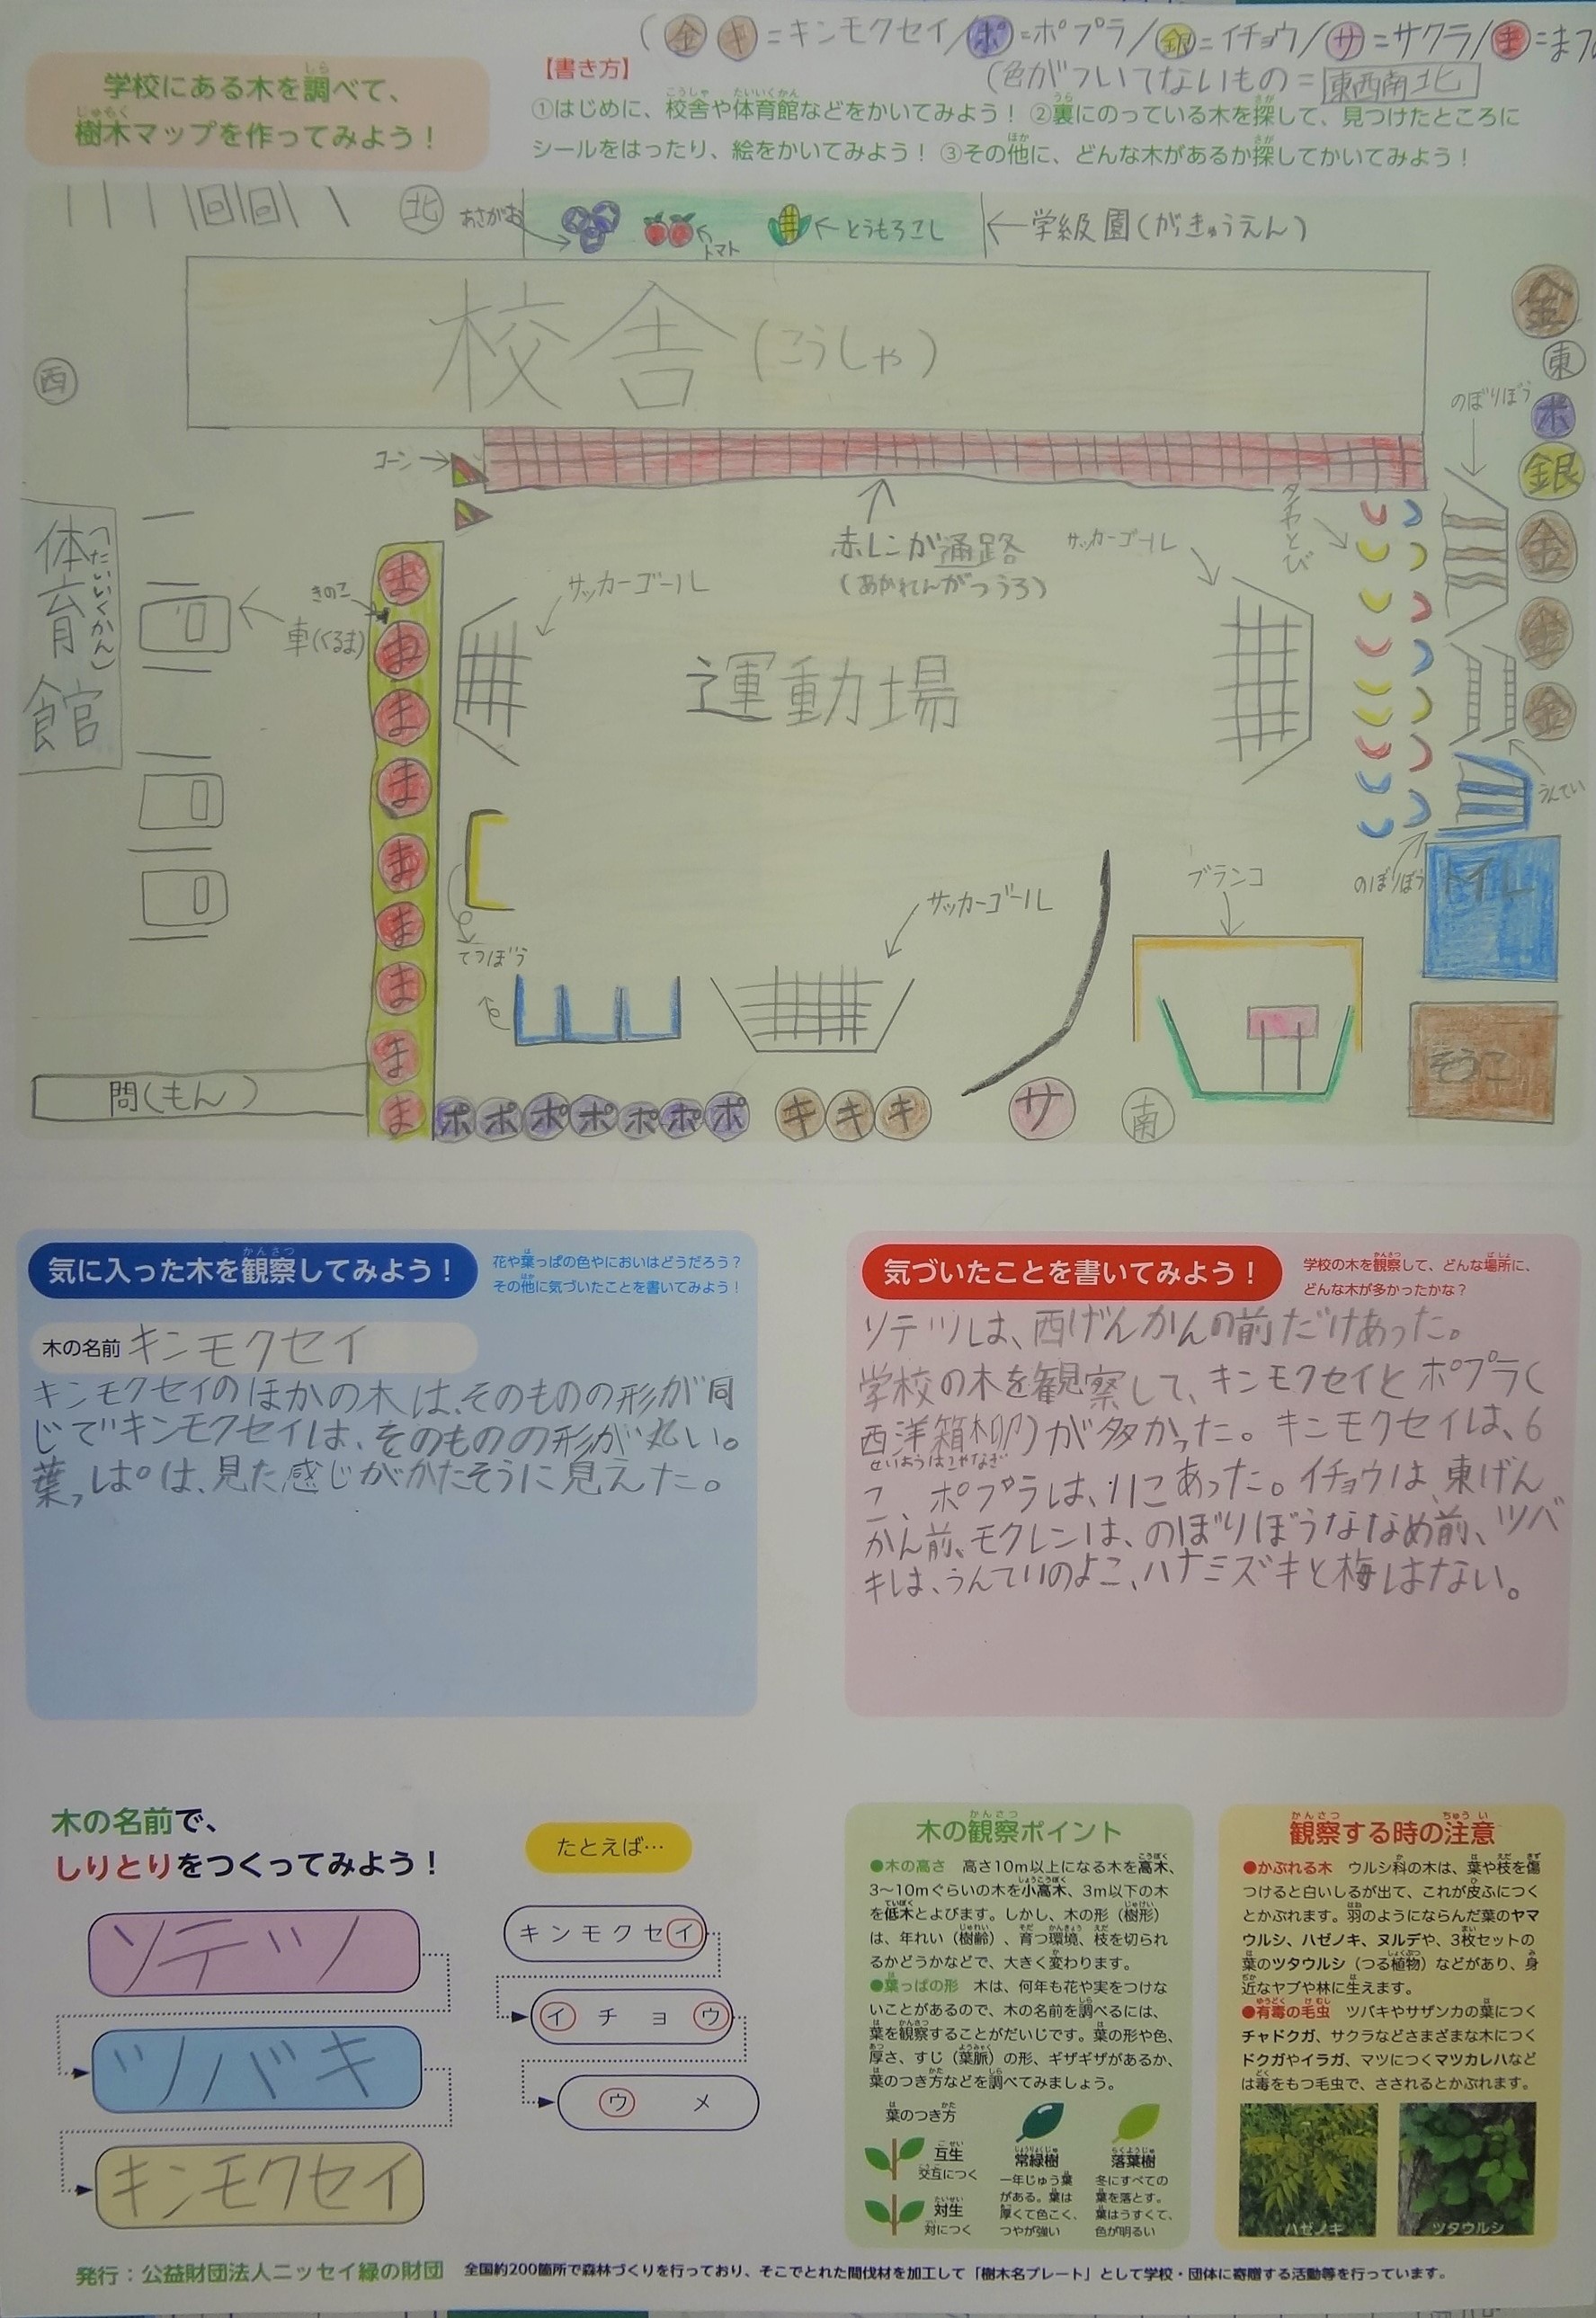 (金 キ =キンモクセイ/ポ=ポプラ/銀=イチョウ/サ=サクラ/ま=まつ
(色がついてないもの=東西南北
学校にある木を調べて、
樹木マップを作ってみよう！
【書き方】
①はじめに、校舎や体育館などをかいてみよう！ ②裏にのっている木を探して、見つけたところに
シールをはったり、絵をかいてみよう！ ③その他に、どんな木があるか探してかいてみよう！
北
あさがお
トマト
←とうもろこし
←学級園(がきゅうえん)
校舎(こうしゃ)
西
金
東
のぼりぼう
ポ
銀
コーン→
赤レンガ通路
(あかれんがつうろ)
サッカーゴール
タイヤとび
金
金
金
体育館
(たいいくかん)
車(くるま)
きのこ
サッカーゴール
運動場
うんてい
のぼりぼう
トイレ
ま
ま
ま
ま
ま
ま
ま
ま
ま
てつぼう
サッカーゴール
ブランコ
そうこ
問(もん)
ポ ポ ポ ポ ポ ポ ポ キ キ キ サ 南
気に入った木を観察してみよう！
花や葉っぱの色やにおいはどうだろう？
その他に気づいたことを書いてみよう！
木の名前 キンモクセイ
キンモクセイのほかの木は、そのものの形が同
じでキンモクセイは、そのものの形が丸い。
葉っぱは、見た感じがかたそうに見えた。
気づいたことを書いてみよう！
学校の木を観察して、どんな場所に、
どんな木が多かったかな？
ソテツは、西げんかんの前だけあった。
学校の木を観察して、キンモクセイとポプラ(
西洋箱柳)が多かった。キンモクセイは、6
せいようはこやなぎ
こ、ポプラは、11こあった。イチョウは、東げん
かん前、モクレンは、のぼりぼうななめ前、ツバ
キは、うんていのよこ、ハナミズキと梅はない。
木の名前で、
しりとりをつくってみよう！
ソテツ
ツバキ
キンモクセイ
たとえば…
キンモクセイ
イチョウ
ウメ
木の観察ポイント
●木の高さ 高さ10m以上になる木を高木、
3〜10mぐらいの木を小高木、3m以下の木
を低木とよびます。しかし、木の形（樹形）
は、年れい（樹齢）、育つ環境、枝を切られ
るかどうかなどで、大きく変わります。
●葉っぱの形 木は、何年も花や実をつけな
いことがあるので、木の名前を調べるには、
葉を観察することがだいじです。葉の形や色、
厚さ、すじ（葉脈）の形、ギザギザがあるか、
葉のつき方などを調べてみましょう。
葉のつき方
互生
交互につく
対生
対につく
常緑樹
一年じゅう葉
がある。葉は
厚くて色こく、
つやが強い
落葉樹
冬にすべての
葉を落とす。
葉はうすくて、
色が明るい
観察する時の注意
●かぶれる木 ウルシ科の木は、葉や枝を傷
つけると白いしるが出て、これが皮ふにつく
とかぶれます。羽のようにならんだ葉のヤマ
ウルシ、ハゼノキ、ヌルデや、3枚セットの
葉のツタウルシ（つる植物）などがあり、身
近なヤブや林に生えます。
●有毒の毛虫 ツバキやサザンカの葉につく
チャドクガ、サクラなどさまざまな木につく
ドクガやイラガ、マツにつくマツカレハなど
は毒をもつ毛虫で、さされるとかぶれます。
ハゼノキ
ツタウルシ
発行：公益財団法人ニッセイ緑の財団 全国約200箇所で森林づくりを行っており、そこでとれた間伐材を加工して「樹木名プレート」として学校・団体に寄贈する活動等を行っています。